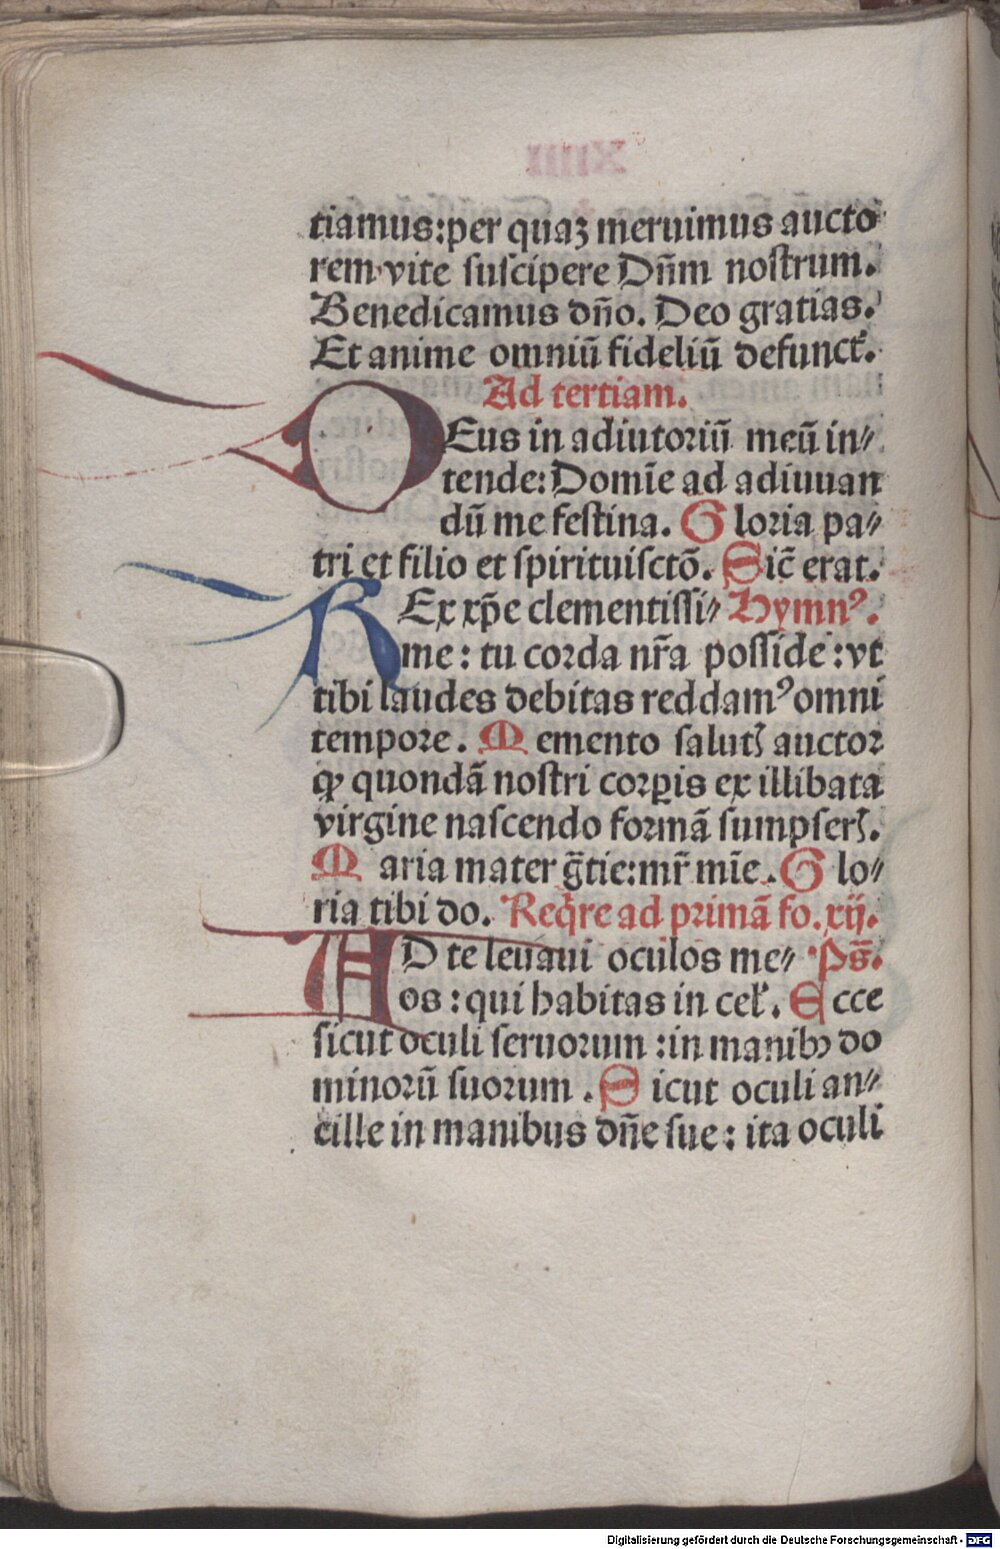 tiamus:per quaꝫ meruimus aucto
rem vite ſuſcipere Dn̄m noſtrum.
Benedicamus dn̄o. Deo gratias.
Et anime omniū fideliū defunct̉.
Ad tertiam.
DEus in adiutoriū meū in⸗
tende: Domīe ad adiuuan
dū me feſtina. Gloria pa⸗
tri et filio et ſpirituiſctō. Sic̄ erat.
REx xp̄e clementiſſi⸗ Hymnꝰ.
me: tu corda nr̄a poſſide: vt
tibi laudes debitas reddamꝰ omni
tempore. Memento ſalutꝭ auctor
ꝙ quondā noſtri corꝑis ex illibata
virgine naſcendo formā ſumpſerꝭ.
Maria mater gr̄tie:mr̄ mīe. Glo⸗
ria tibi do. Reqͥre ad primā fo. xij.
AD te leuaui oculos me⸗ Ps̄.
os: qui habitas in cel̉. Ecce
ſicut oculi ſeruorum: in manibꝫ do
minorū ſuorum. Sicut oculi an⸗
cille in manibus dn̄e ſue: ita oculi
Digitalisierung gefördert durch die Deutsche Forschungsgemeinschaft - DFG